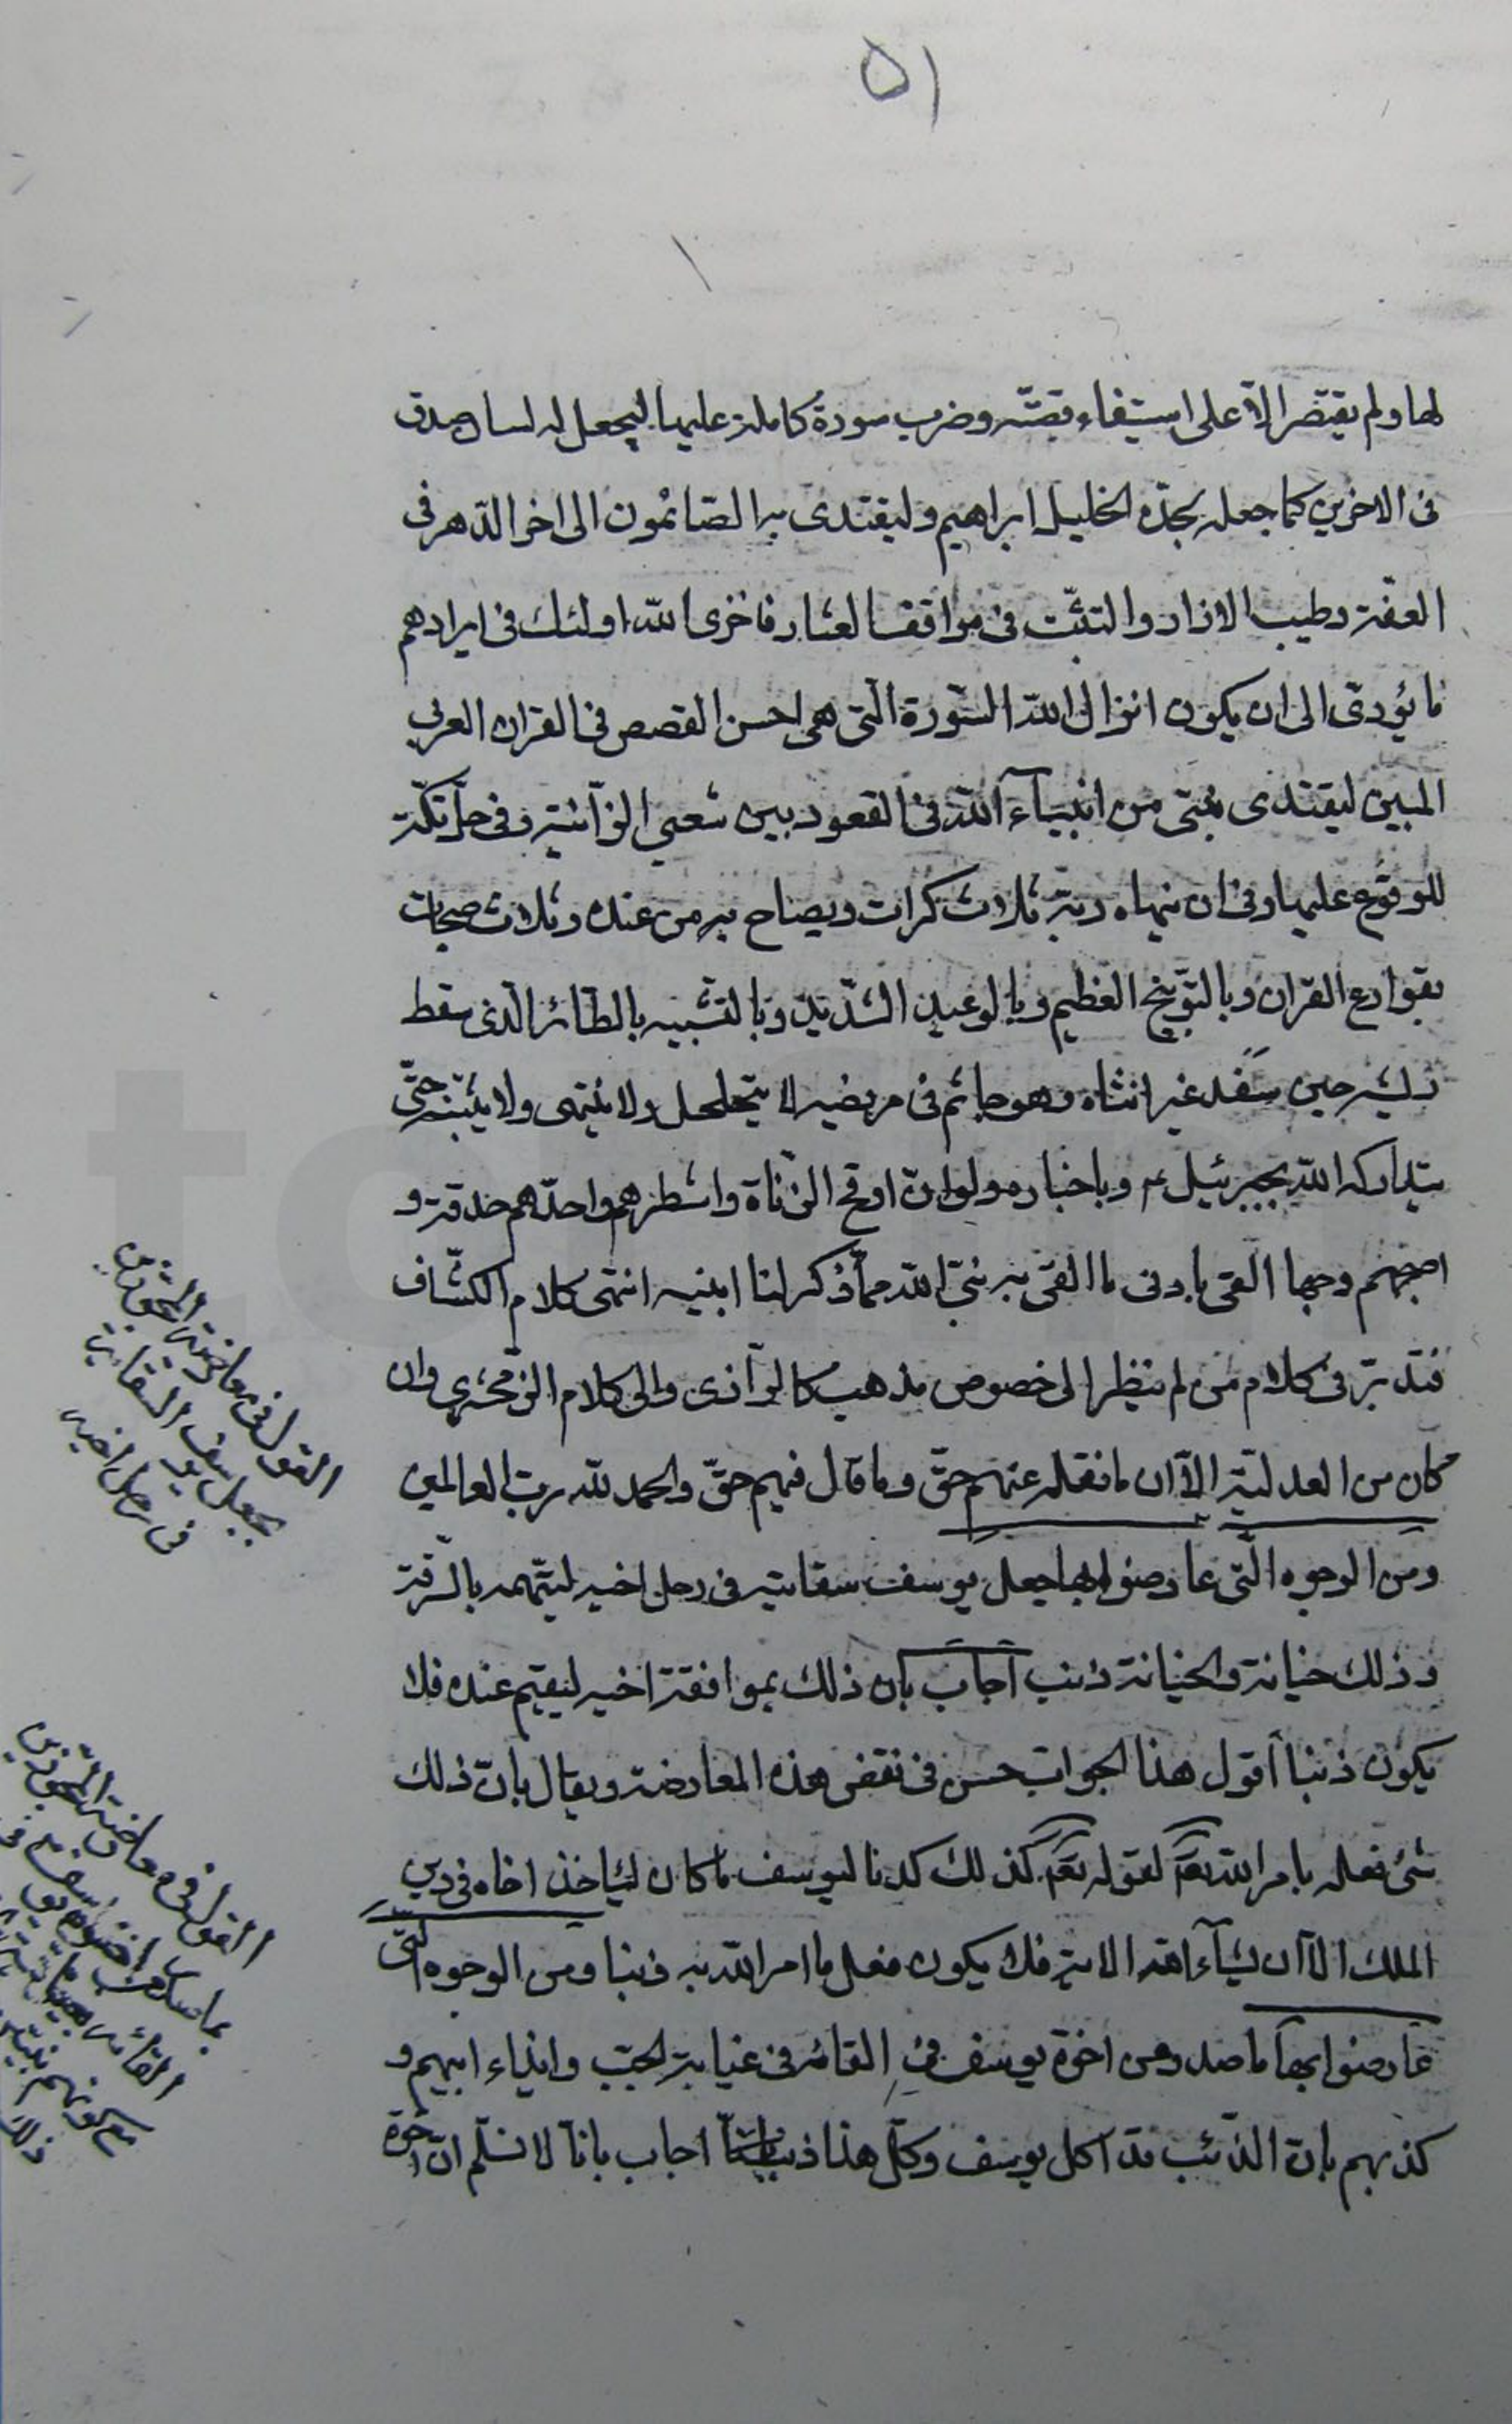 ٥١
لها ولم يقتصر الّا على استيفاء قصّته وضرب سورة كاملة عليها ليجعل له لسان صدق
فى الاخرين كما جعله لجدّه الخليل ابراهيم وليقتدى به الصّائمون الى اخر الدّهر فى
العفّة وطيب الازار والتثبّت فى مواقف العثار فاخزى الله اولئك فى ايرادهم
ما يؤدّى الى ان يكون انزال الله السّورة الّتى هى احسن القصص فى القران العربى
المبين ليقتدى بنبىّ من انبيآء الله فى القعود بين شعبي الزّانية وفى حلّ تكّته
للوقوع عليها وفى ان ينهاه ربّه ثلاث كرات ويصاح به من عنده وثلاث صيحات
بقوارع القران وبالتّوبيخ العظيم وبالوعيد الشّديد وبالتشبيه بالطّائر الّذى سقط
ريشه حين سفد غير انثاه وهو جاثم فى مربضه لا يتحلحل ولا ينتهى ولا ينتبه حتّى
يتداركه الله بجبرئيل ع وباجباره ولو انّ اوقح الزّناة واشطرهم واحدّهم حدقة و
اصجهم وجها القى بادنى ما القى به نبىّ الله ممّا ذكر لنا ابنيه انتهى كلام الكشّاف
فتدبّر فى كلام من لم ينظر الى خصوص مذهب كالرّازى والى كلام الزّمخشرى وان
كان من العدليّة الّا ان ما نقله عنهم حقّ وما قال فيهم حقّ والحمد لله ربّ العالمين
ومن الوجوه الّتى عارضوا بها جعل يوسف سقايته فى رحل اخيه ليتّهمه بالسّرقة
وذلك خيانة والخيانة ذنب اجاب بان ذلك بموافقة اخيه ليقيم عنده فلا
يكون ذنبا أقول هذا الجواب حسن فى نقض هذه المعارضة ويقال بانّ ذلك
شئ فعله بامر الله تعم لقوله تعم كذلك كدنا ليوسف ما كان ليأخذ اخاه فى دين
الملك الّا ان يشآء الله الاية فلا يكون فعل ما امر الله به ذنبا ومن الوجوه الّتى
عارضوا بها ما صدر من اخوة يوسف من القائه فى غيابة الجبّ وايذاء ابيهم و
كذبهم بانّ الذّئب قد اكل يوسف وكلّ هذا ذنب اجاب بانّا لا نسلّم انّ اخوة
القول فى معارضة المجوّزين
بجعل يوسف السقاية
فى رحل اخيه
القول فى معارضة المجوّزين
بما صدر من اخوة يوسف
القائه
مع كونهم
ذلك